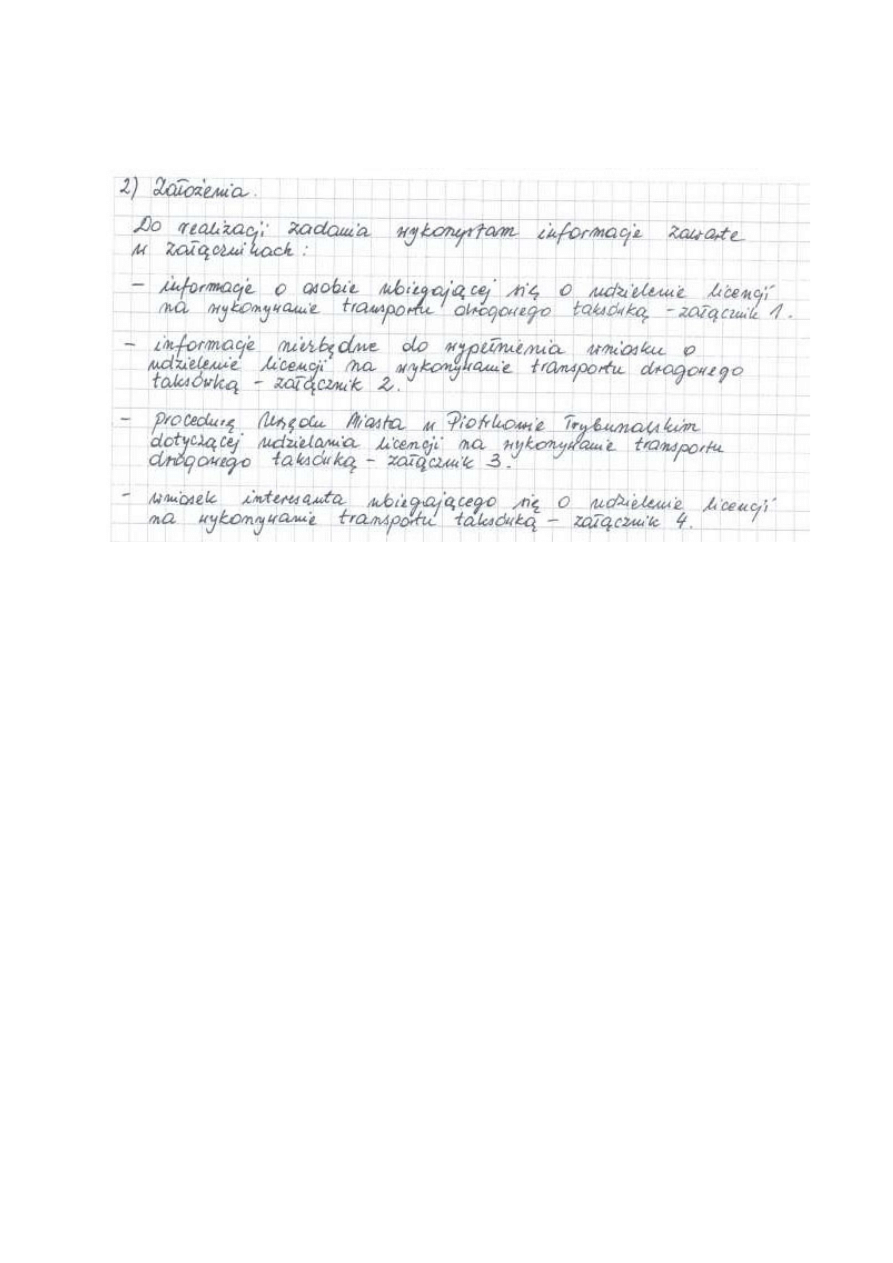 2) Założenia.
Do realizacji zadania wykorzystam informacje zawarte
w załącznikach:
- informacje o osobie ubiegającej się o udzielenie licencji
na wykonywanie transportu drogowego taksówką - załącznik 1.
- informacje niezbędne do wypełnienia wniosku o
udzielenie licencji na wykonywanie transportu drogowego
taksówką - załącznik 2.
- procedurę Urzędu Miasta w Piotrkowie Trybunalskim
dotyczącej udzielania licencji na wykonywanie transportu
drogowego taksówką - załącznik 3.
- wniosek interesanta ubiegającego się o udzielenie licencji
na wykonywanie transportu taksówką - załącznik 4.